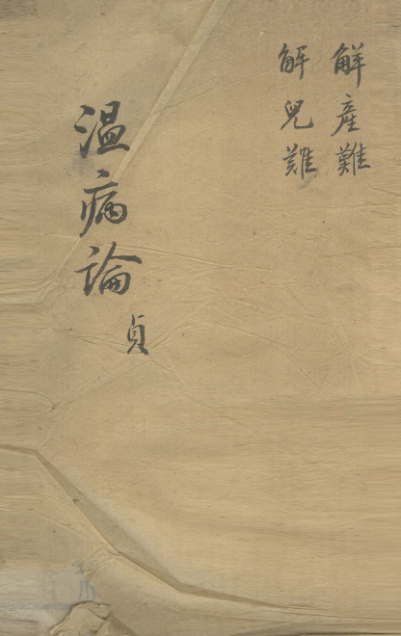 解產難
解兒難
温病論
貞